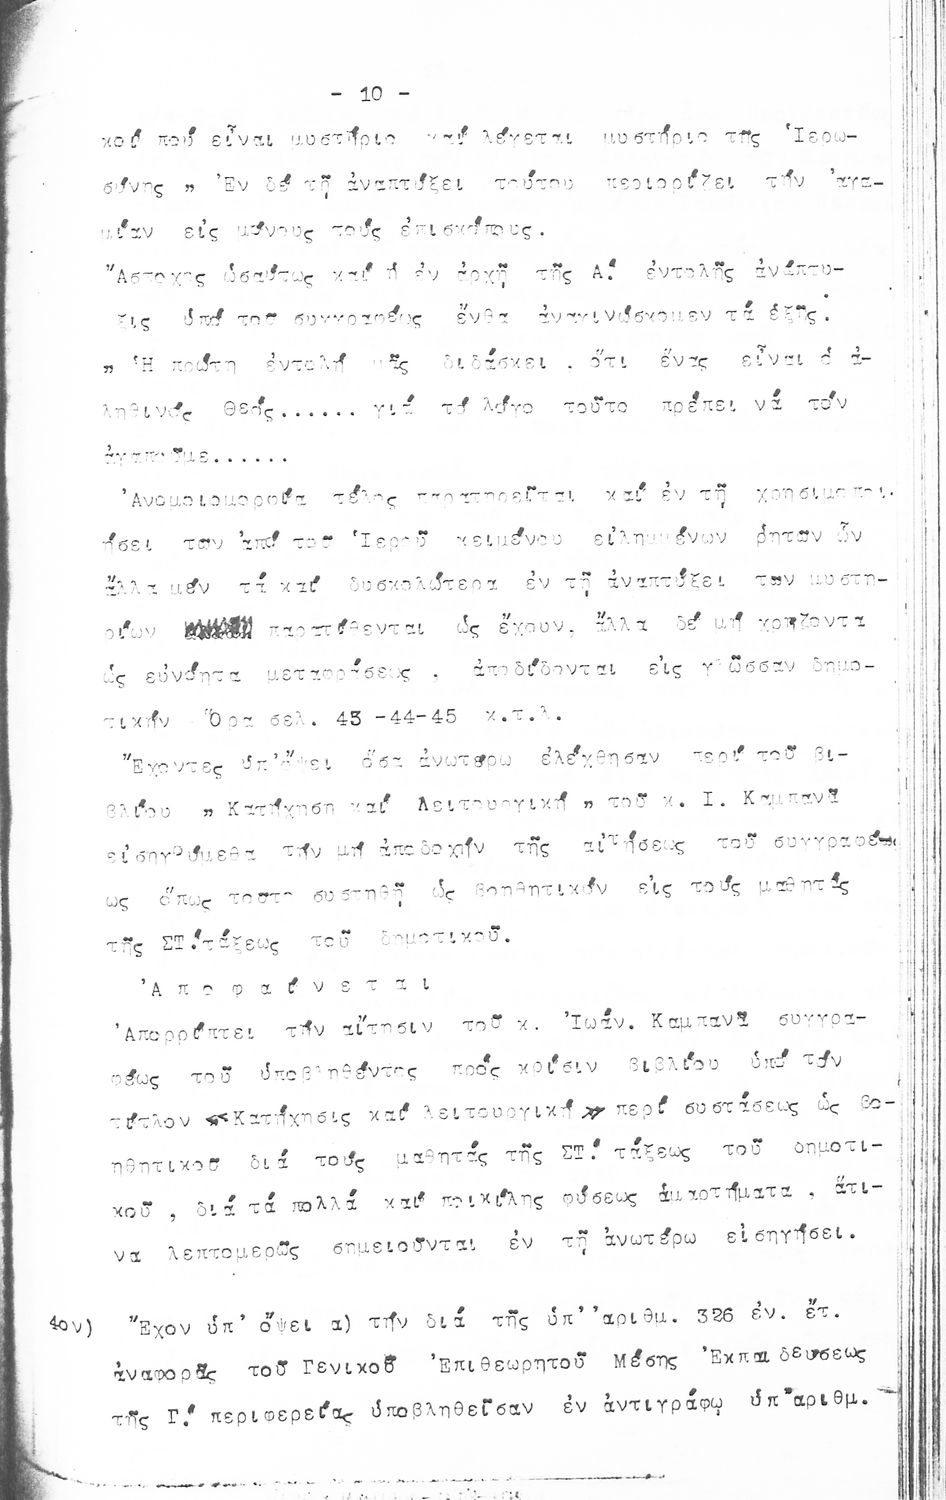 - 10 -
κού πού εἶναι μυστήριο καί λέγεται μυστήριο τῆς Ἱερω-
σύνης „ Ἐν δέ τῇ ἀναπτύξει τούτου περιορίζει τήν ἀγα-
μίαν εἰς μόνους τούς ἐπισκόπους.
Ἄστοχος ὡσαύτως καί ἡ ἐν ἀρχῇ τῆς Α! ἐντολῆς ἀνάπτυ-
ξις ὑπό του συγγραφέως ἔνθα ἀναγινώσκομεν τά ἑξῆς:
„ Ἡ πρώτη ἐντολή μᾶς διδάσκει . ὅτι ἕνας εἶναι ὁ ἀ-
ληθινός Θεός...... γιά τό λόγο τοῦτο πρέπει νά τόν
ἀγαποῦμε......
Ἀνομοιομορφία τέλος παρατηρεῖται καί ἐν τῇ χρησιμοποι.
ήσει των ἀπό του Ἱεροῦ κειμένου εἰλημμένων ῥητων ὧν
ἄλλα μέν τά καί δυσκολώτερα ἐν τῇ ἀναπτύξει των μυστη-
ρίων παρατίθενται ὡς ἔχουν, ἄλλα δέ μή χρήζοντα
ὡς εὐνόητα μεταφράσεως , ἀποδίδονται εἰς γλῶσσαν δημο-
τικήν Ὅρα σελ. 43 -44-45 κ.τ.λ.
Ἔχοντες ὑπ'ὄψει ὅσα ἀνωτέρω ἐλέχθησαν περί τοῦ βι-
βλίου „ Κατήχηση καί Λειτουργική „ τοῦ κ. Ι. Καμπανᾶ
εἰσηγούμεθα τήν μή ἀποδοχήν τῆς αἰτήσεως τοῦ συγγραφέ-
ως ὅπως τουτο συστηθῇ ὡς βοηθητικόν εἰς τούς μαθητάς
τῆς ΣΤ!τάξεως τοῦ δημοτικοῦ.
Ἀ π ο φ α ί ν ε τ α ι
Ἀπορρίπτει τήν αἴτησιν τοῦ κ. Ἰωάν. Καμπανᾶ συγγρα-
φέως τοῦ ὑποβληθέντος πρός κρίσιν βιβλίου ὑπό τόν
τίτλον «Κατήχησις καί λειτουργική» περί συστάσεως ὡς βο-
ηθητικου διά τούς μαθητάς τῆς ΣΤ! τάξεως τοῦ δημοτι-
κοῦ , διά τά πολλά καί ποικίλης φύσεως ἁμαρτήματα , ἅτι-
να λεπτομερῶς σημειοῦνται ἐν τῇ ἀνωτέρω εἰσηγήσει.
4ον) Ἔχον ὑπ' ὄψει α) τήν διά τῆς ὑπ' ἀριθμ. 326 ἐν. ἔτ.
ἀναφορᾶς τοῦ Γενικοῦ Ἐπιθεωρητοῦ Μέσης Ἐκπαιδεύσεως
τῆς Γ! περιφερείας ὑποβληθεῖσαν ἐν ἀντιγράφῳ ὑπ'ἀριθμ.